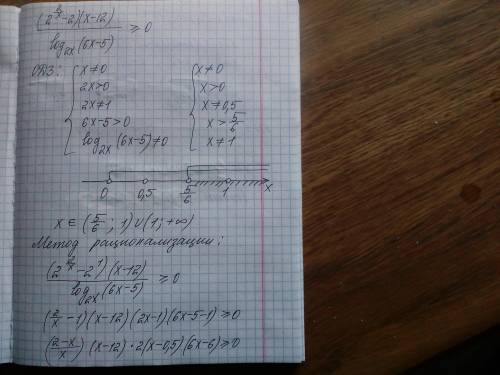 (2^{2/x}-2)(x-12) / log_{2x}(6x-5) ≥ 0
ОДЗ: { x≠0 { x≠0
2x>0 x>0
2x≠1 x≠0,5
6x-5>0 x>5/6
log_{2x}(6x-5)≠0 x≠1
0 0,5 5/6 1 x
x ∈ (5/6; 1)∪(1; +∞)
Метод рационализации:
(2^{2/x}-2^1)(x-12) / log_{2x}(6x-5) ≥ 0
(2/x -1)(x-12)(2x-1)(6x-5-1)≥0
((2-x)/x)(x-12)·2(x-0,5)(6x-6)≥0